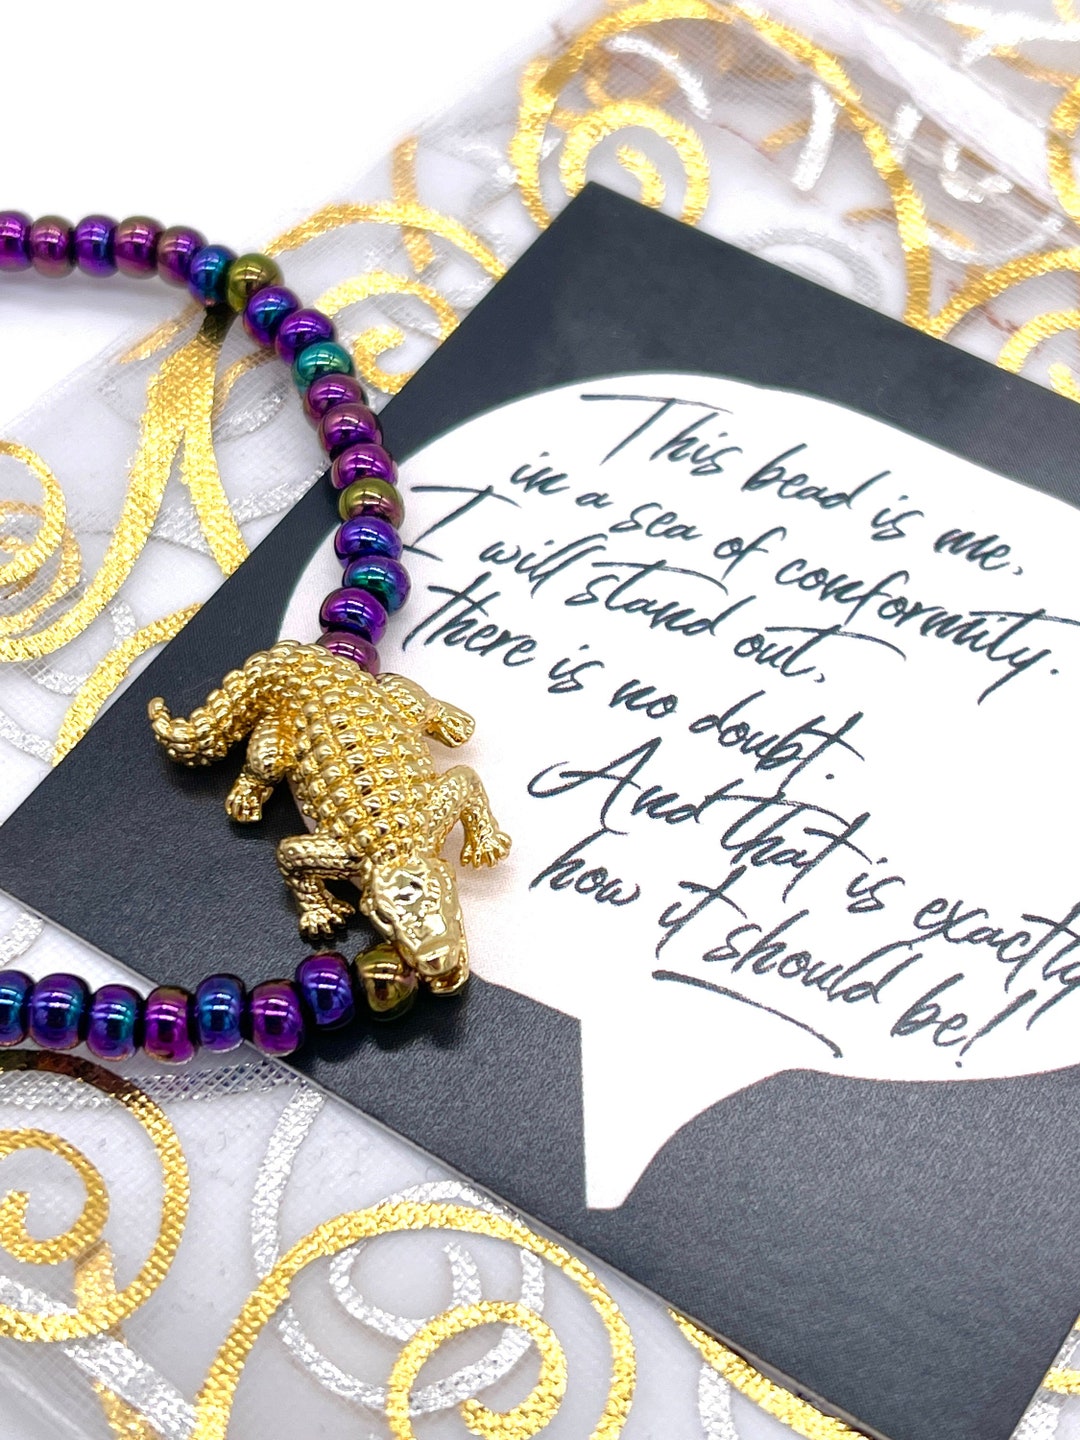 This bead is me,
in a sea of conformity.
I will stand out,
there is no doubt.
And that is exactly
how it should be!